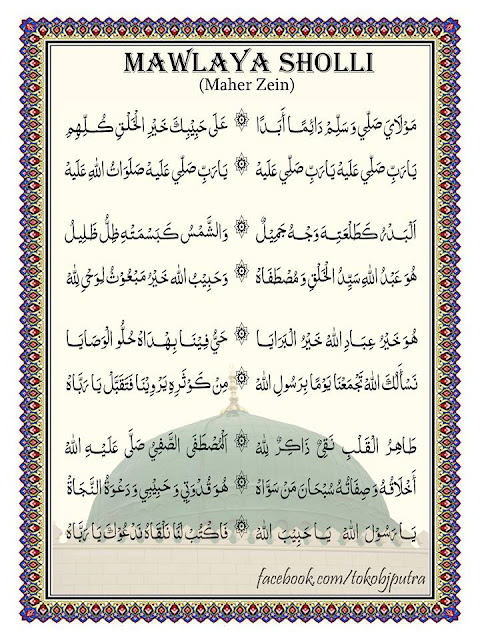 MAWLAYA SHOLLI
(Maher Zein)
مَوْلَايَ صَلِّي وَسَلِّمْ دَائِمًا أَبَدًا ۞ عَلَى حَبِيْبِكَ خَيْرِ الْخَلْقِ كُلِّهِمِ
يَارَبِّ صَلِّي عَلَيْهْ يَارَبِّ صَلِّي عَلَيْهْ ۞ يَارَبِّ صَلِّي عَلَيْهْ صَلَوَاتُ اللهِ عَلَيْهْ
اَلْبَدْرُ كَطَلْعَتِهِ وَجْهُ جَمِيْلٌ ۞ وَالشَّمْسُ كَبَسْمَتِهِ ظِلُّ ظَلِيْلُ
هُوَ عَبْدُ اللهِ سَيِّدُ الْخَلْقِ وَمُصْطَفَاهْ ۞ وَحَبِيْبُ الله خَيْرُ مَبْعُوْثٌ لِوَحْيِ لِلّٰهْ
هُوَ خَيْرُ عِبَادِ اللهْ خَيْرُ الْبَرَايَا ۞ حَيُّ فِيْنَا بِهُدَاهْ حُلُو الْوَصَايَا
نَسْأَلُكَ اللهْ تَجْمَعْنَا يَوْمًا بِرَسُوْلِ اللهْ ۞ مِنْ كَوْثَرِهِ يَرْوِيْنَا فَتَقَبَّلْ يَا رَبَّاهْ
طَاهِرُ الْقَلْبِ نَقِيٌّ ذَاكِرٌ لِلّٰهْ ۞ اَلْمُصْطَفَى الصَّفِيُّ صَلَّى عَلَيْهِ اللهْ
أَخْلَاقُهُ وَصِفَاتُهُ سُبْحَانَ مَنْ سَوَّاهْ ۞ هُوَ قُدْوَتِي وَحَبِيْبِي وَدَعْوَةُ النَّجَاةْ
يَا رَسُوْلَ اللهْ يَا حَبِيْبَ اللهْ ۞ فَاكْتُبْ لَنَا نَلْقَاهُ نَدْعُوْكَ يَا رَبَّاهْ
facebook.com/tokobjputra